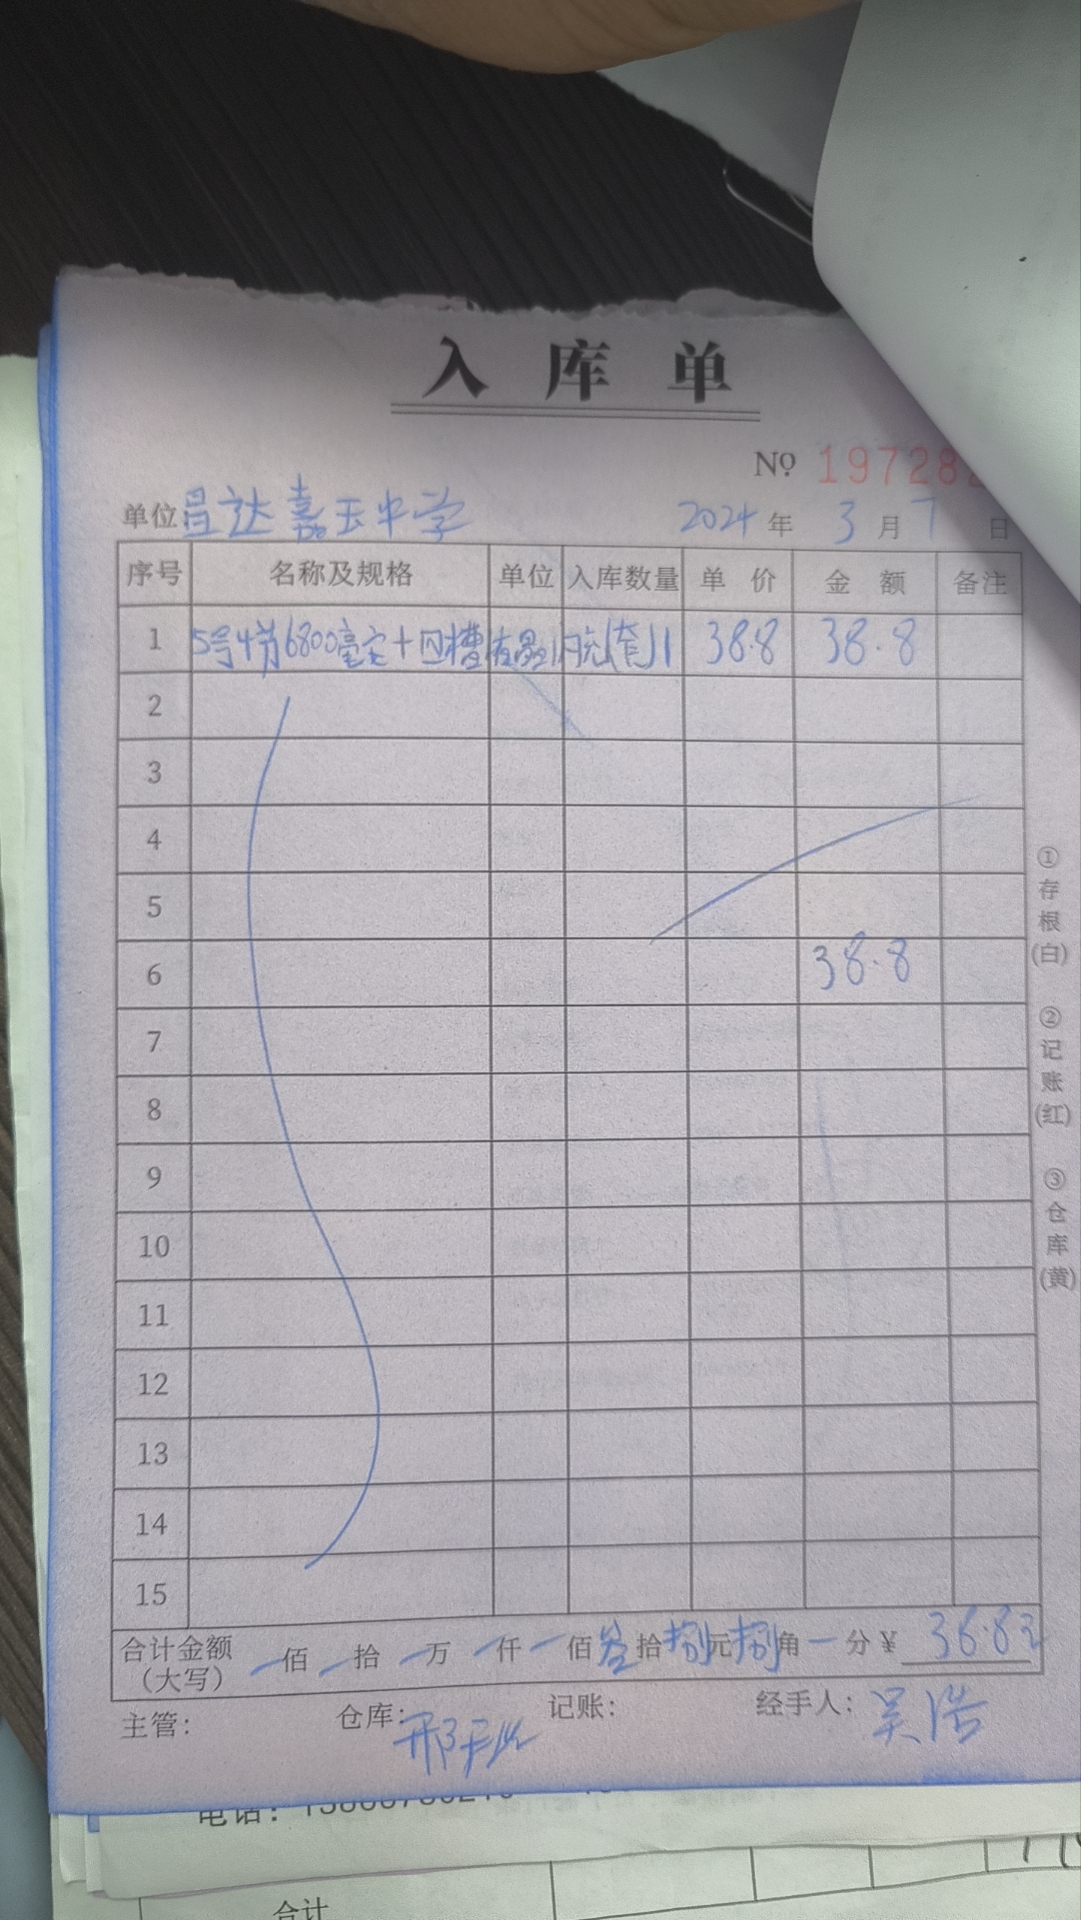 入库单
№ 19728
单位 昌达嘉玉中学 2024年3月7日
序号 名称及规格 单位 入库数量 单价 金额 备注
1 5号4节6800毫安+四槽液晶 (套) 1 38.8 38.8
2
3
4
5
6 38.8
7
8
9
10
11
12
13
14
15
合计金额（大写） 一佰 一拾 一万 一仟 一佰 叁拾捌元捌角一分 ¥ 38.8元
主管： 仓库：邢 记账： 经手人：吴浩
①存根(白) ②记账(红) ③仓库(黄)
电话：
合计